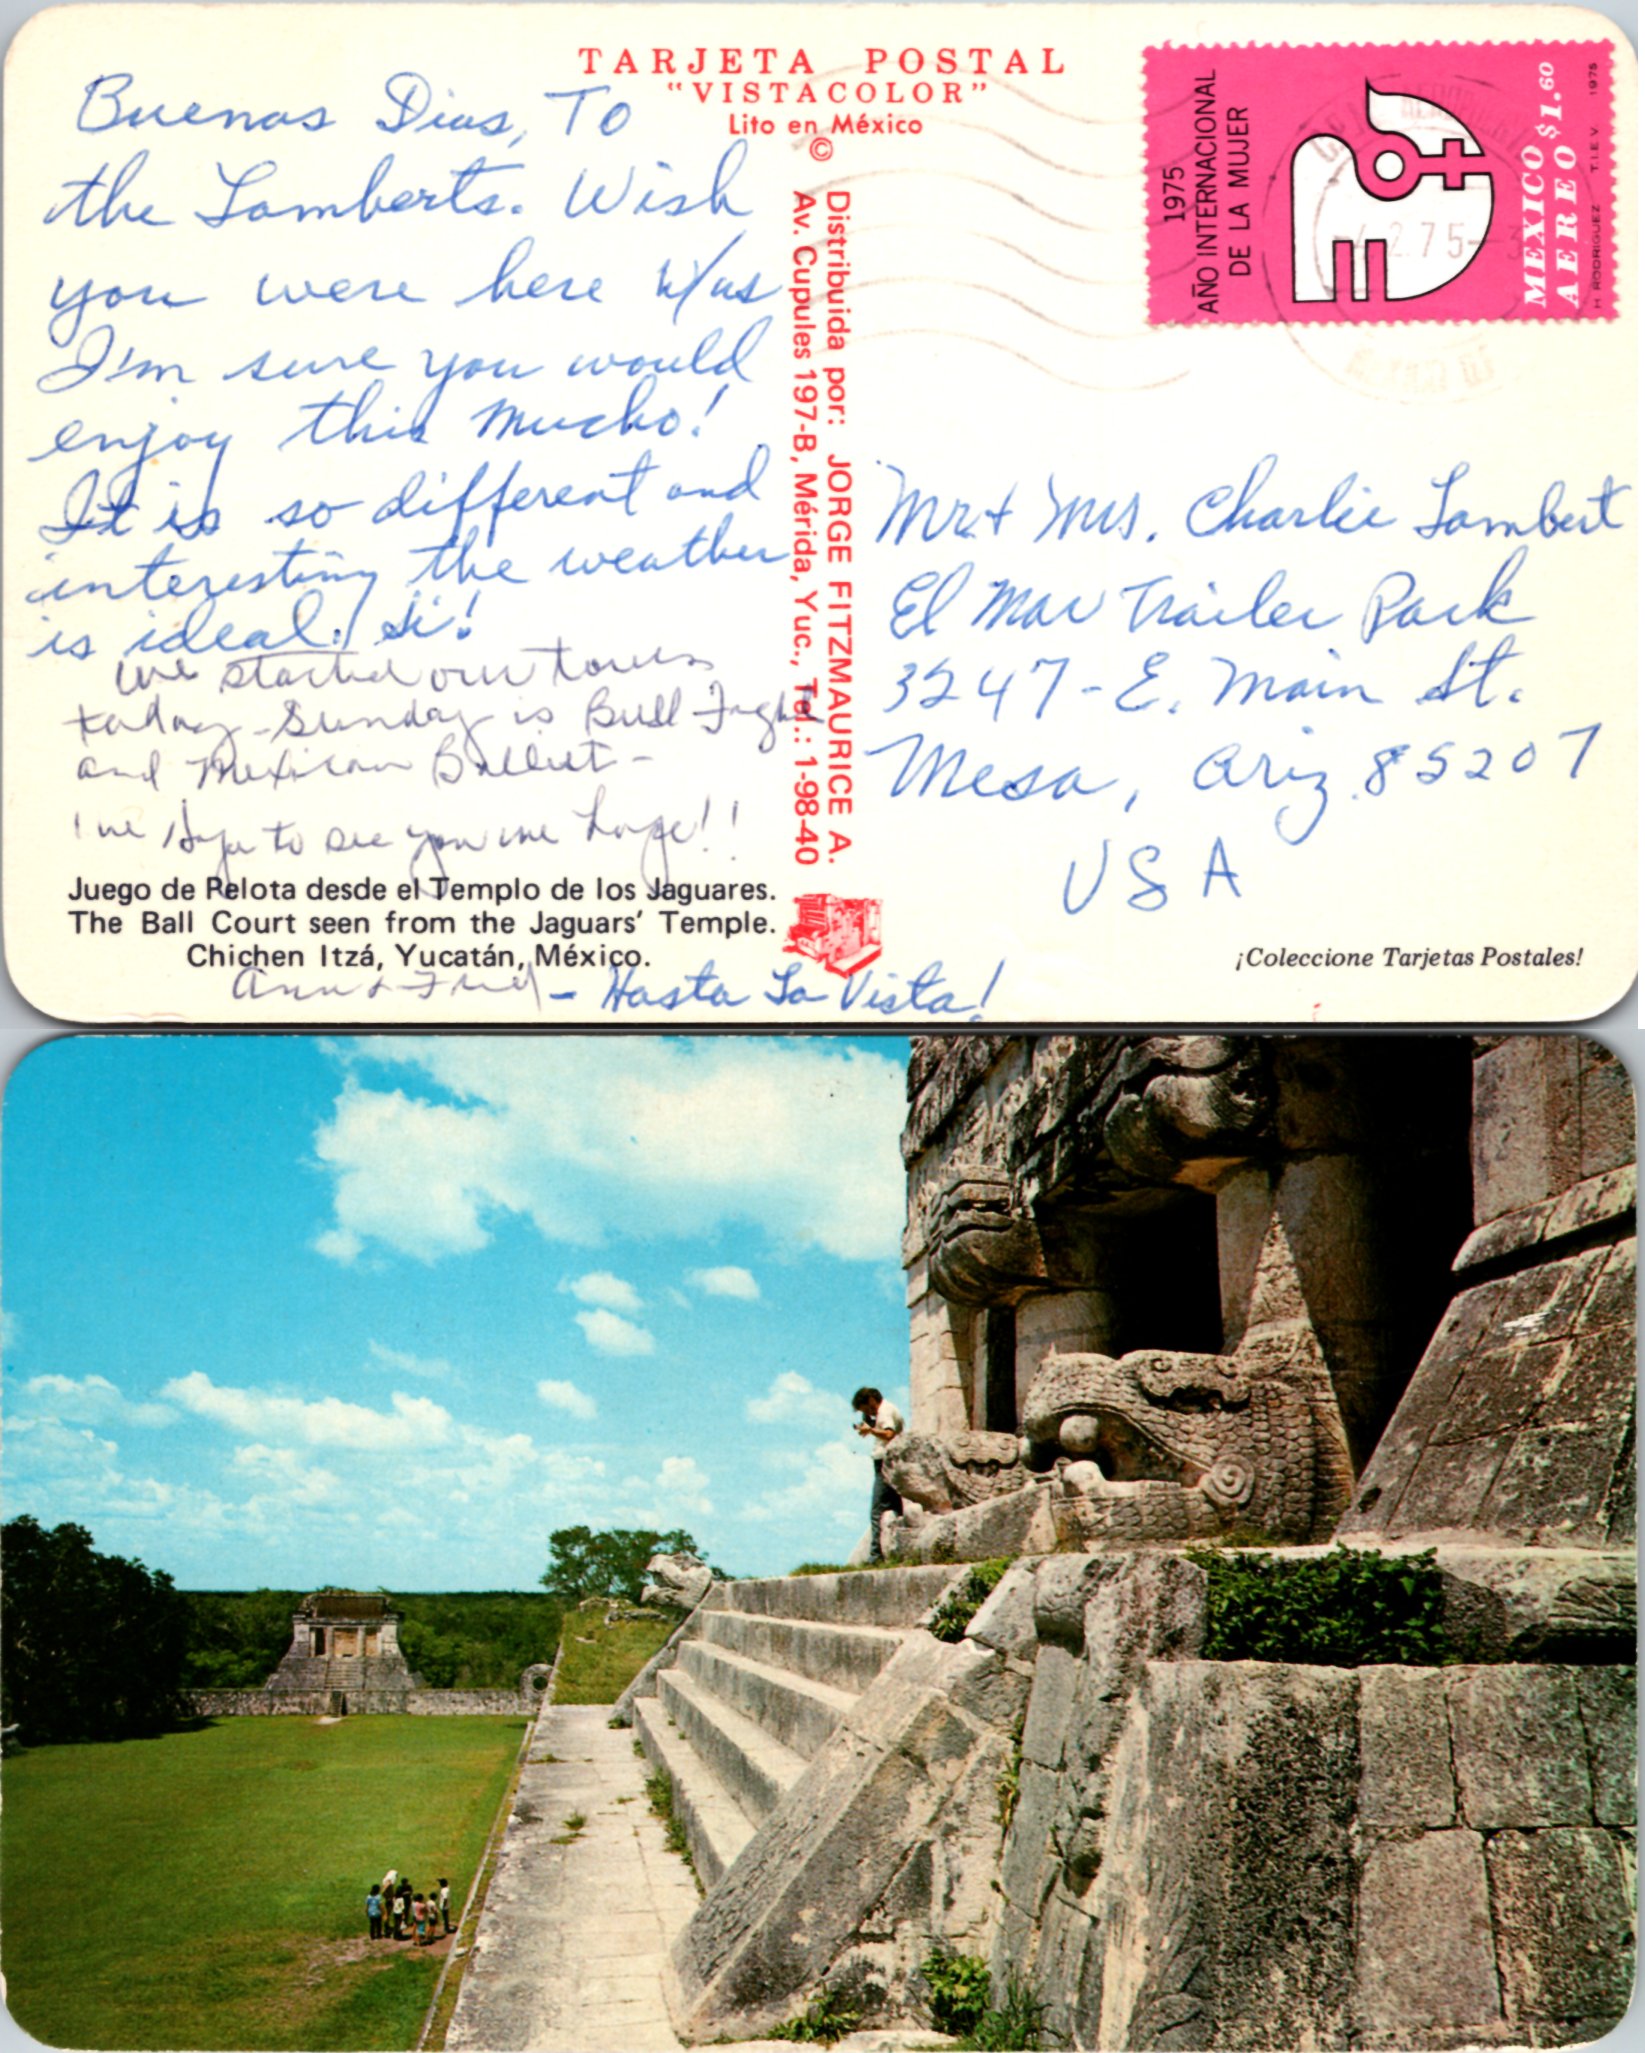 TARJETA POSTAL
"VISTACOLOR"
Lito en México
©
Distribuida por: JORGE FITZMAURICE A.
Av. Cupules 197-B, Mérida, Yuc., Tel.: 1-98-40
1975
AÑO INTERNACIONAL
DE LA MUJER
MEXICO $1.60
AEREO
H RODRIGUEZ T.I.E.V. 1975
2.75
Buenas Dias, To
the Lamberts. Wish
you were here w/us
I'm sure you would
enjoy this mucho!
It is so different and
interesting the weather
is ideal. Si!
We started our tours
today - Sunday is Bull Fight
and Mexican Ballet -
to see you
Juego de Pelota desde el Templo de los Jaguares.
The Ball Court seen from the Jaguars' Temple.
Chichen Itzá, Yucatán, México.
Ann & Fred - Hasta La Vista!
Mr. + Mrs. Charlie Lambert
El Mar Trailer Park
3247 - E. Main St.
Mesa, Ariz. 85207
USA
¡Coleccione Tarjetas Postales!